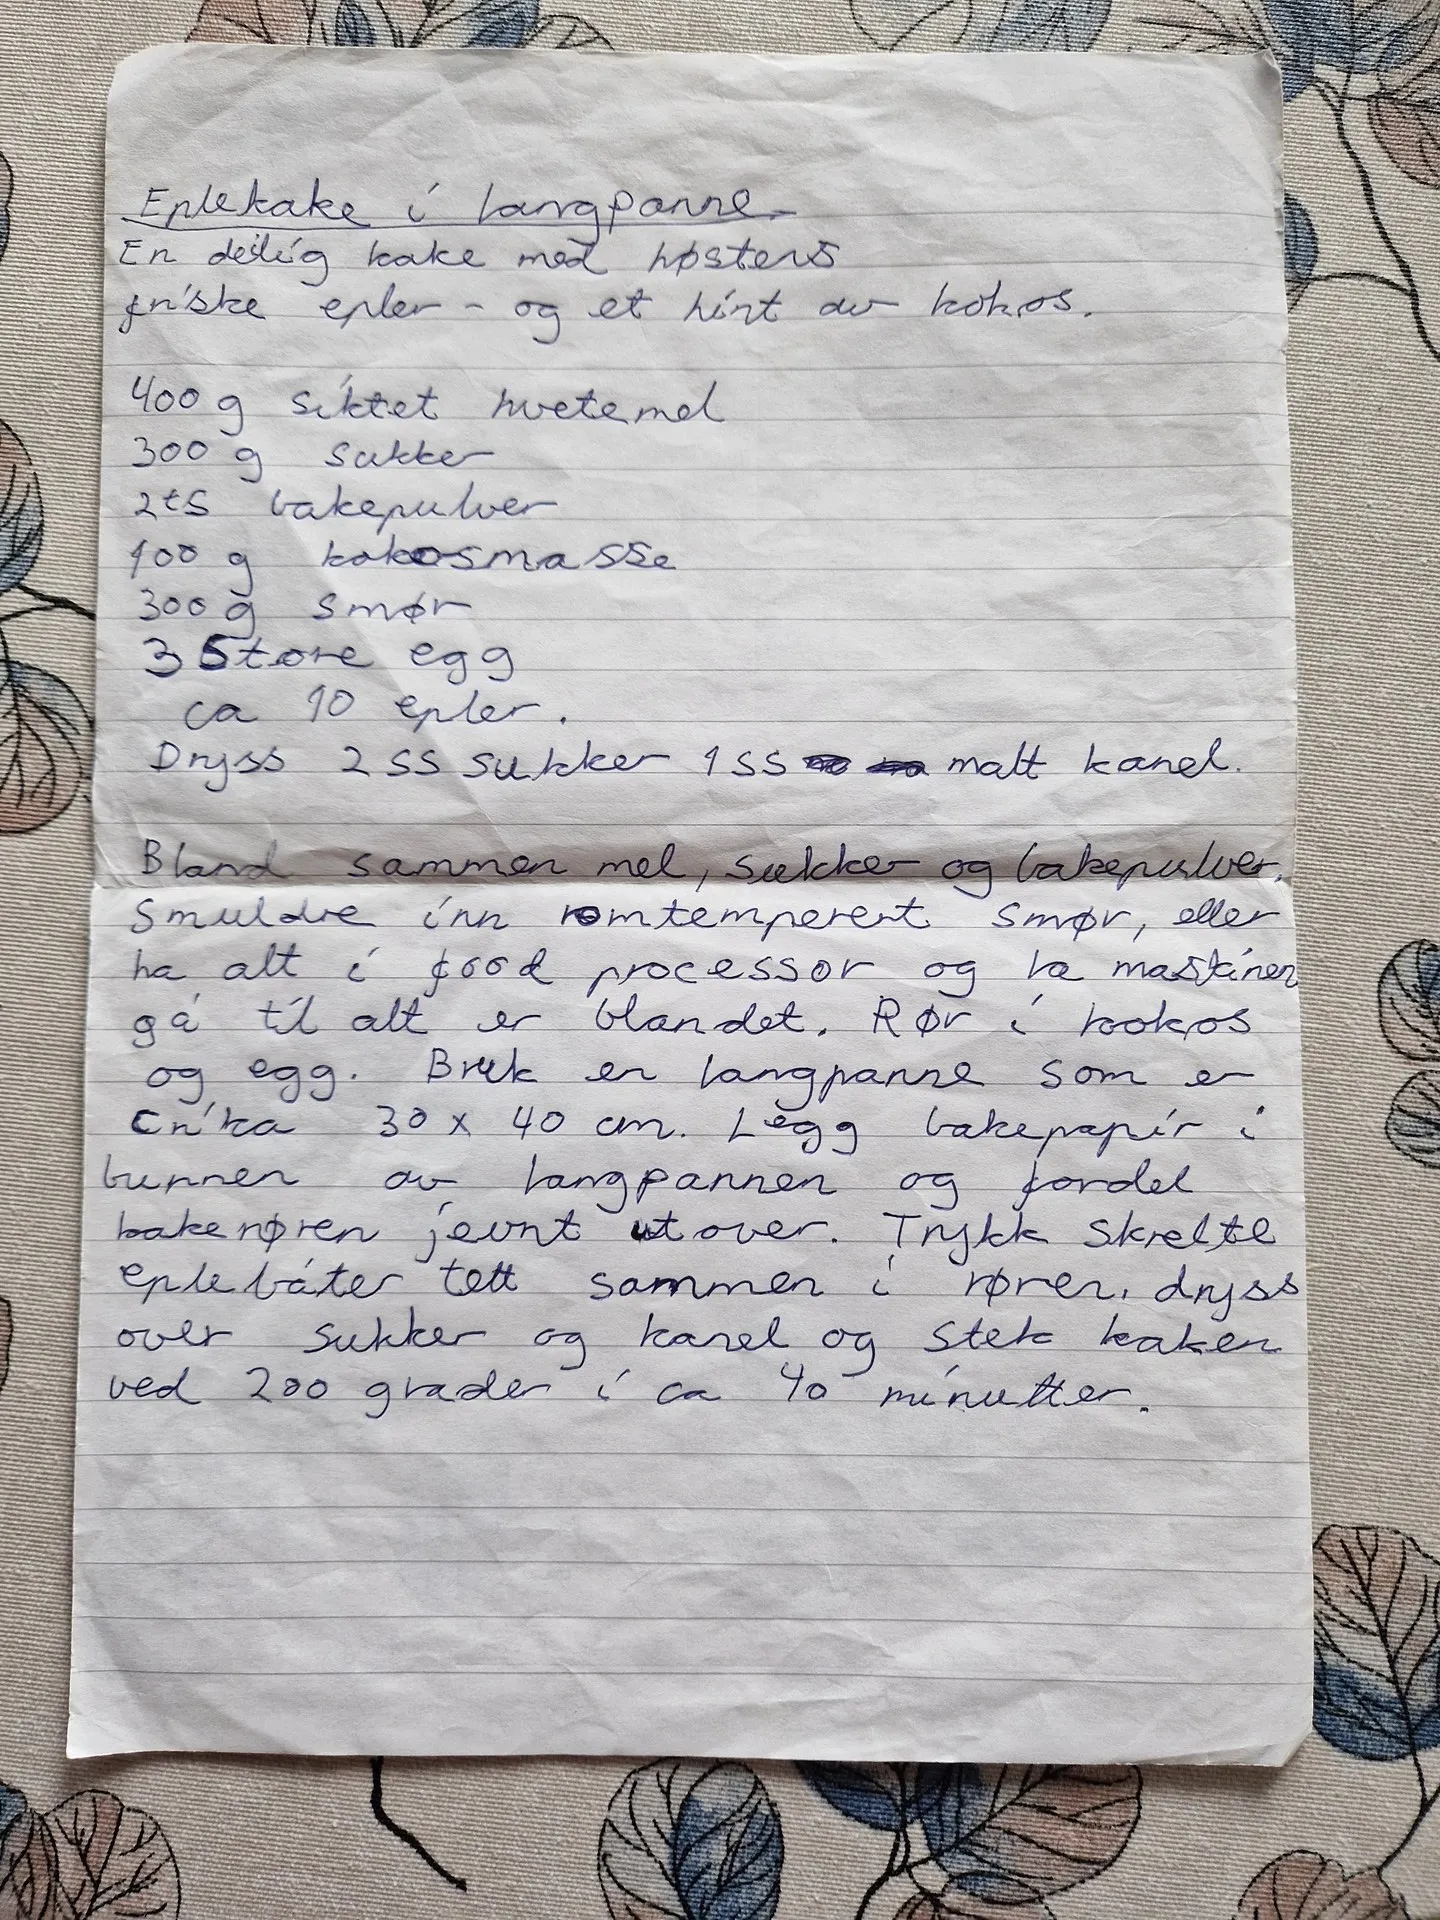 Eplekake i langpanne.
En deilig kake med høstens
friske epler - og et hint av kokos.
400 g siktet hvetemel
300 g sukker
2ts bakepulver
100 g kokosmasse
300 g smør
3 Store egg
ca 10 epler.
Dryss 2 ss sukker 1 ss malt kanel.
Bland sammen mel, sukker og bakepulver.
Smuldre inn romtemperert smør, eller
ha alt i food processor og la maskinen
gå til alt er blandet. Rør i kokos
og egg. Bruk en langpanne som er
Cirka 30 x 40 cm. Legg bakepapir i
bunnen av langpannen og fordel
bakerøren jevnt utover. Trykk skrelte
eplebåter tett sammen i røren. dryss
over sukker og kanel og stek kaken
ved 200 grader i ca 40 minutter.